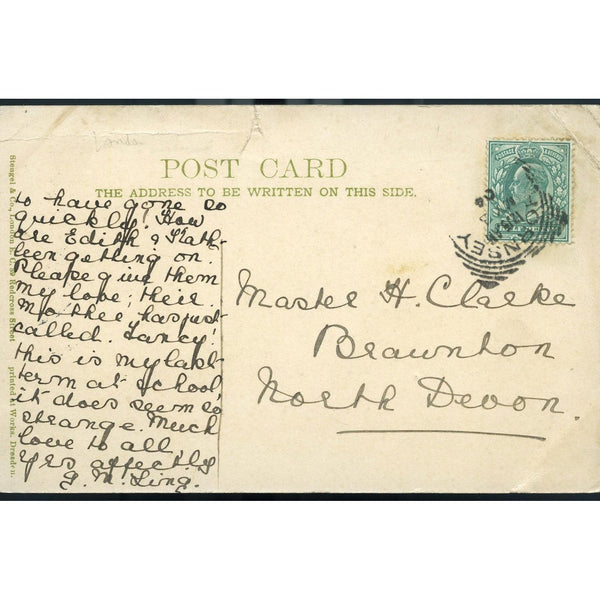 London
POST CARD
THE ADDRESS TO BE WRITTEN ON THIS SIDE.
to have gone so
quickly! How
are Edith & Kath-
leen getting on.
Please give them
my love; their
mother has just
called. Fancy!
this is my last
term at school
it does seem so
strange. Much
love to all
Yrs affectly
G. M. Ling.
Master H. Clarke
Braunton
North Devon.
POSTAGE
HALF PENNY
Stengel & Co., London E. C. 39 Redcross Street
printed at Works, Dresden.